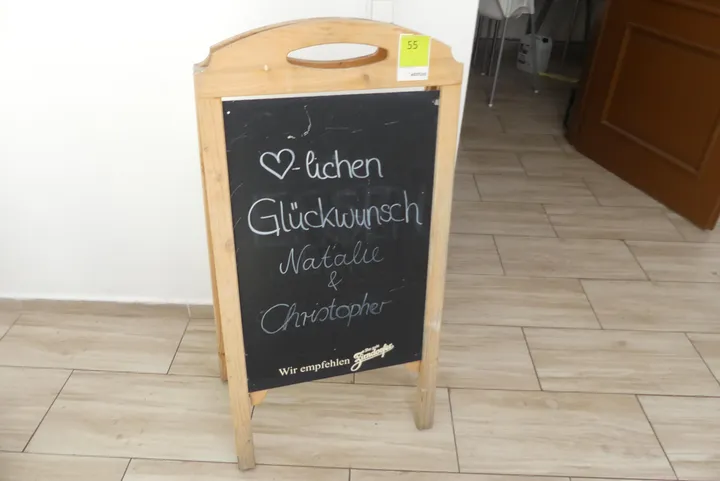 55
♡-lichen
Glückwunsch
Natalie
&
Christopher
Wir empfehlen